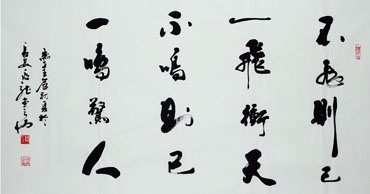 不飛則已
一飛衝天
不鳴則已
一鳴驚人